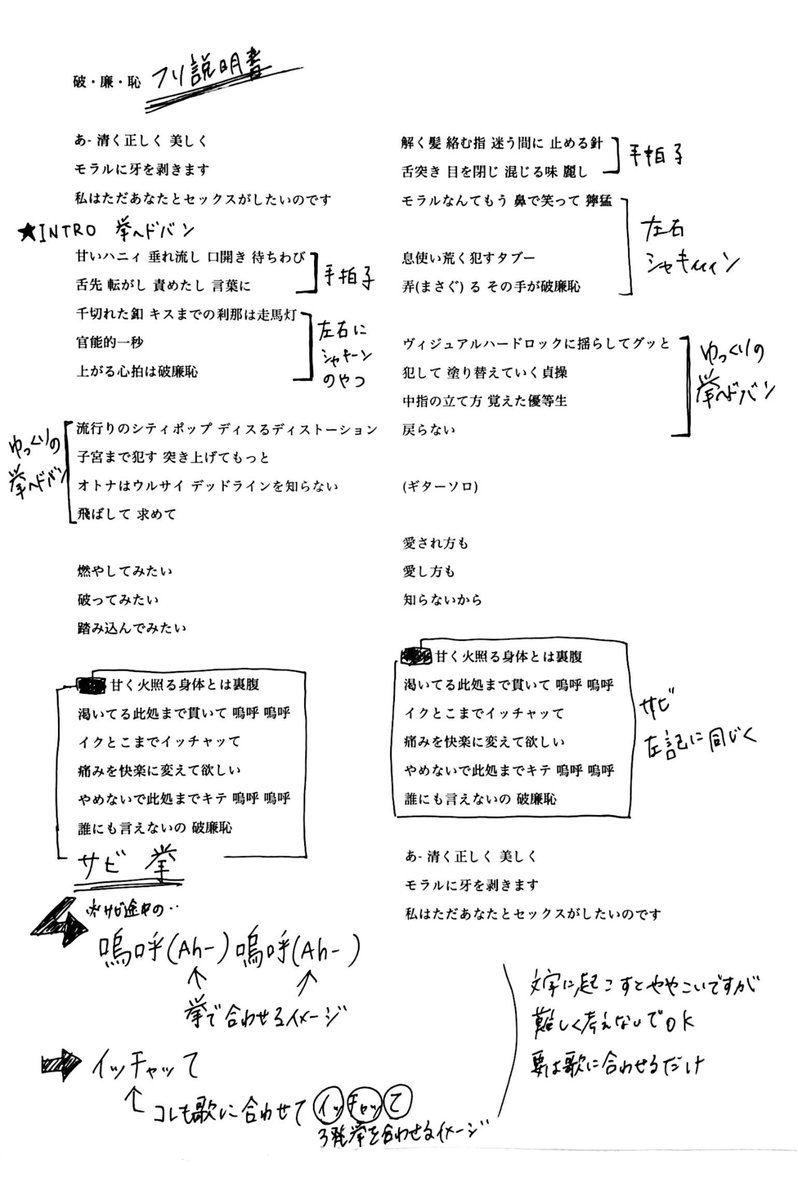 破・廉・恥 フリ説明書
あ- 清く正しく 美しく
モラルに牙を剥きます
私はただあなたとセックスがしたいのです
★INTRO 拳ヘドバン
甘いハニィ 垂れ流し 口開き 待ちわび
舌先 転がし 責めたし 言葉に
手拍子
千切れた釦 キスまでの刹那は走馬灯
官能的一秒
上がる心拍は破廉恥
左右に
シャキーン
のやつ
流行りのシティポップ ディスるディストーション
子宮まで犯す 突き上げてもっと
オトナはウルサイ デッドラインを知らない
飛ばして 求めて
ゆっくりの
拳ヘドバン
燃やしてみたい
破ってみたい
踏み込んでみたい
甘く火照る身体とは裏腹
渇いてる此処まで貫いて 嗚呼 嗚呼
イクとこまでイッチャッて
痛みを快楽に変えて欲しい
やめないで此処までキテ 嗚呼 嗚呼
誰にも言えないの 破廉恥
サビ 拳
※サビ途中の‥
嗚呼(Ah-)嗚呼(Ah-)
拳で合わせるイメージ
イッチャッて
コレも歌に合わせて イッチャッて
3発拳を合わせるイメージ
解く髪 絡む指 迷う間に 止める針
舌突き 目を閉じ 混じる味 麗し
手拍子
モラルなんてもう 鼻で笑って 獰猛
息使い荒く犯すタブー
弄(まさぐ) る その手が破廉恥
左右
シャキィィィン
ヴィジュアルハードロックに揺らしてグッと
犯して 塗り替えていく貞操
中指の立て方 覚えた優等生
戻らない
ゆっくりの
拳ヘドバン
(ギターソロ)
愛され方も
愛し方も
知らないから
甘く火照る身体とは裏腹
渇いてる此処まで貫いて 嗚呼 嗚呼
イクとこまでイッチャッて
痛みを快楽に変えて欲しい
やめないで此処までキテ 嗚呼 嗚呼
誰にも言えないの 破廉恥
サビ
左記に同じく
あ- 清く正しく 美しく
モラルに牙を剥きます
私はただあなたとセックスがしたいのです
文字に起こすとややこいですが
難しく考えないでOK
要は歌に合わせるだけ